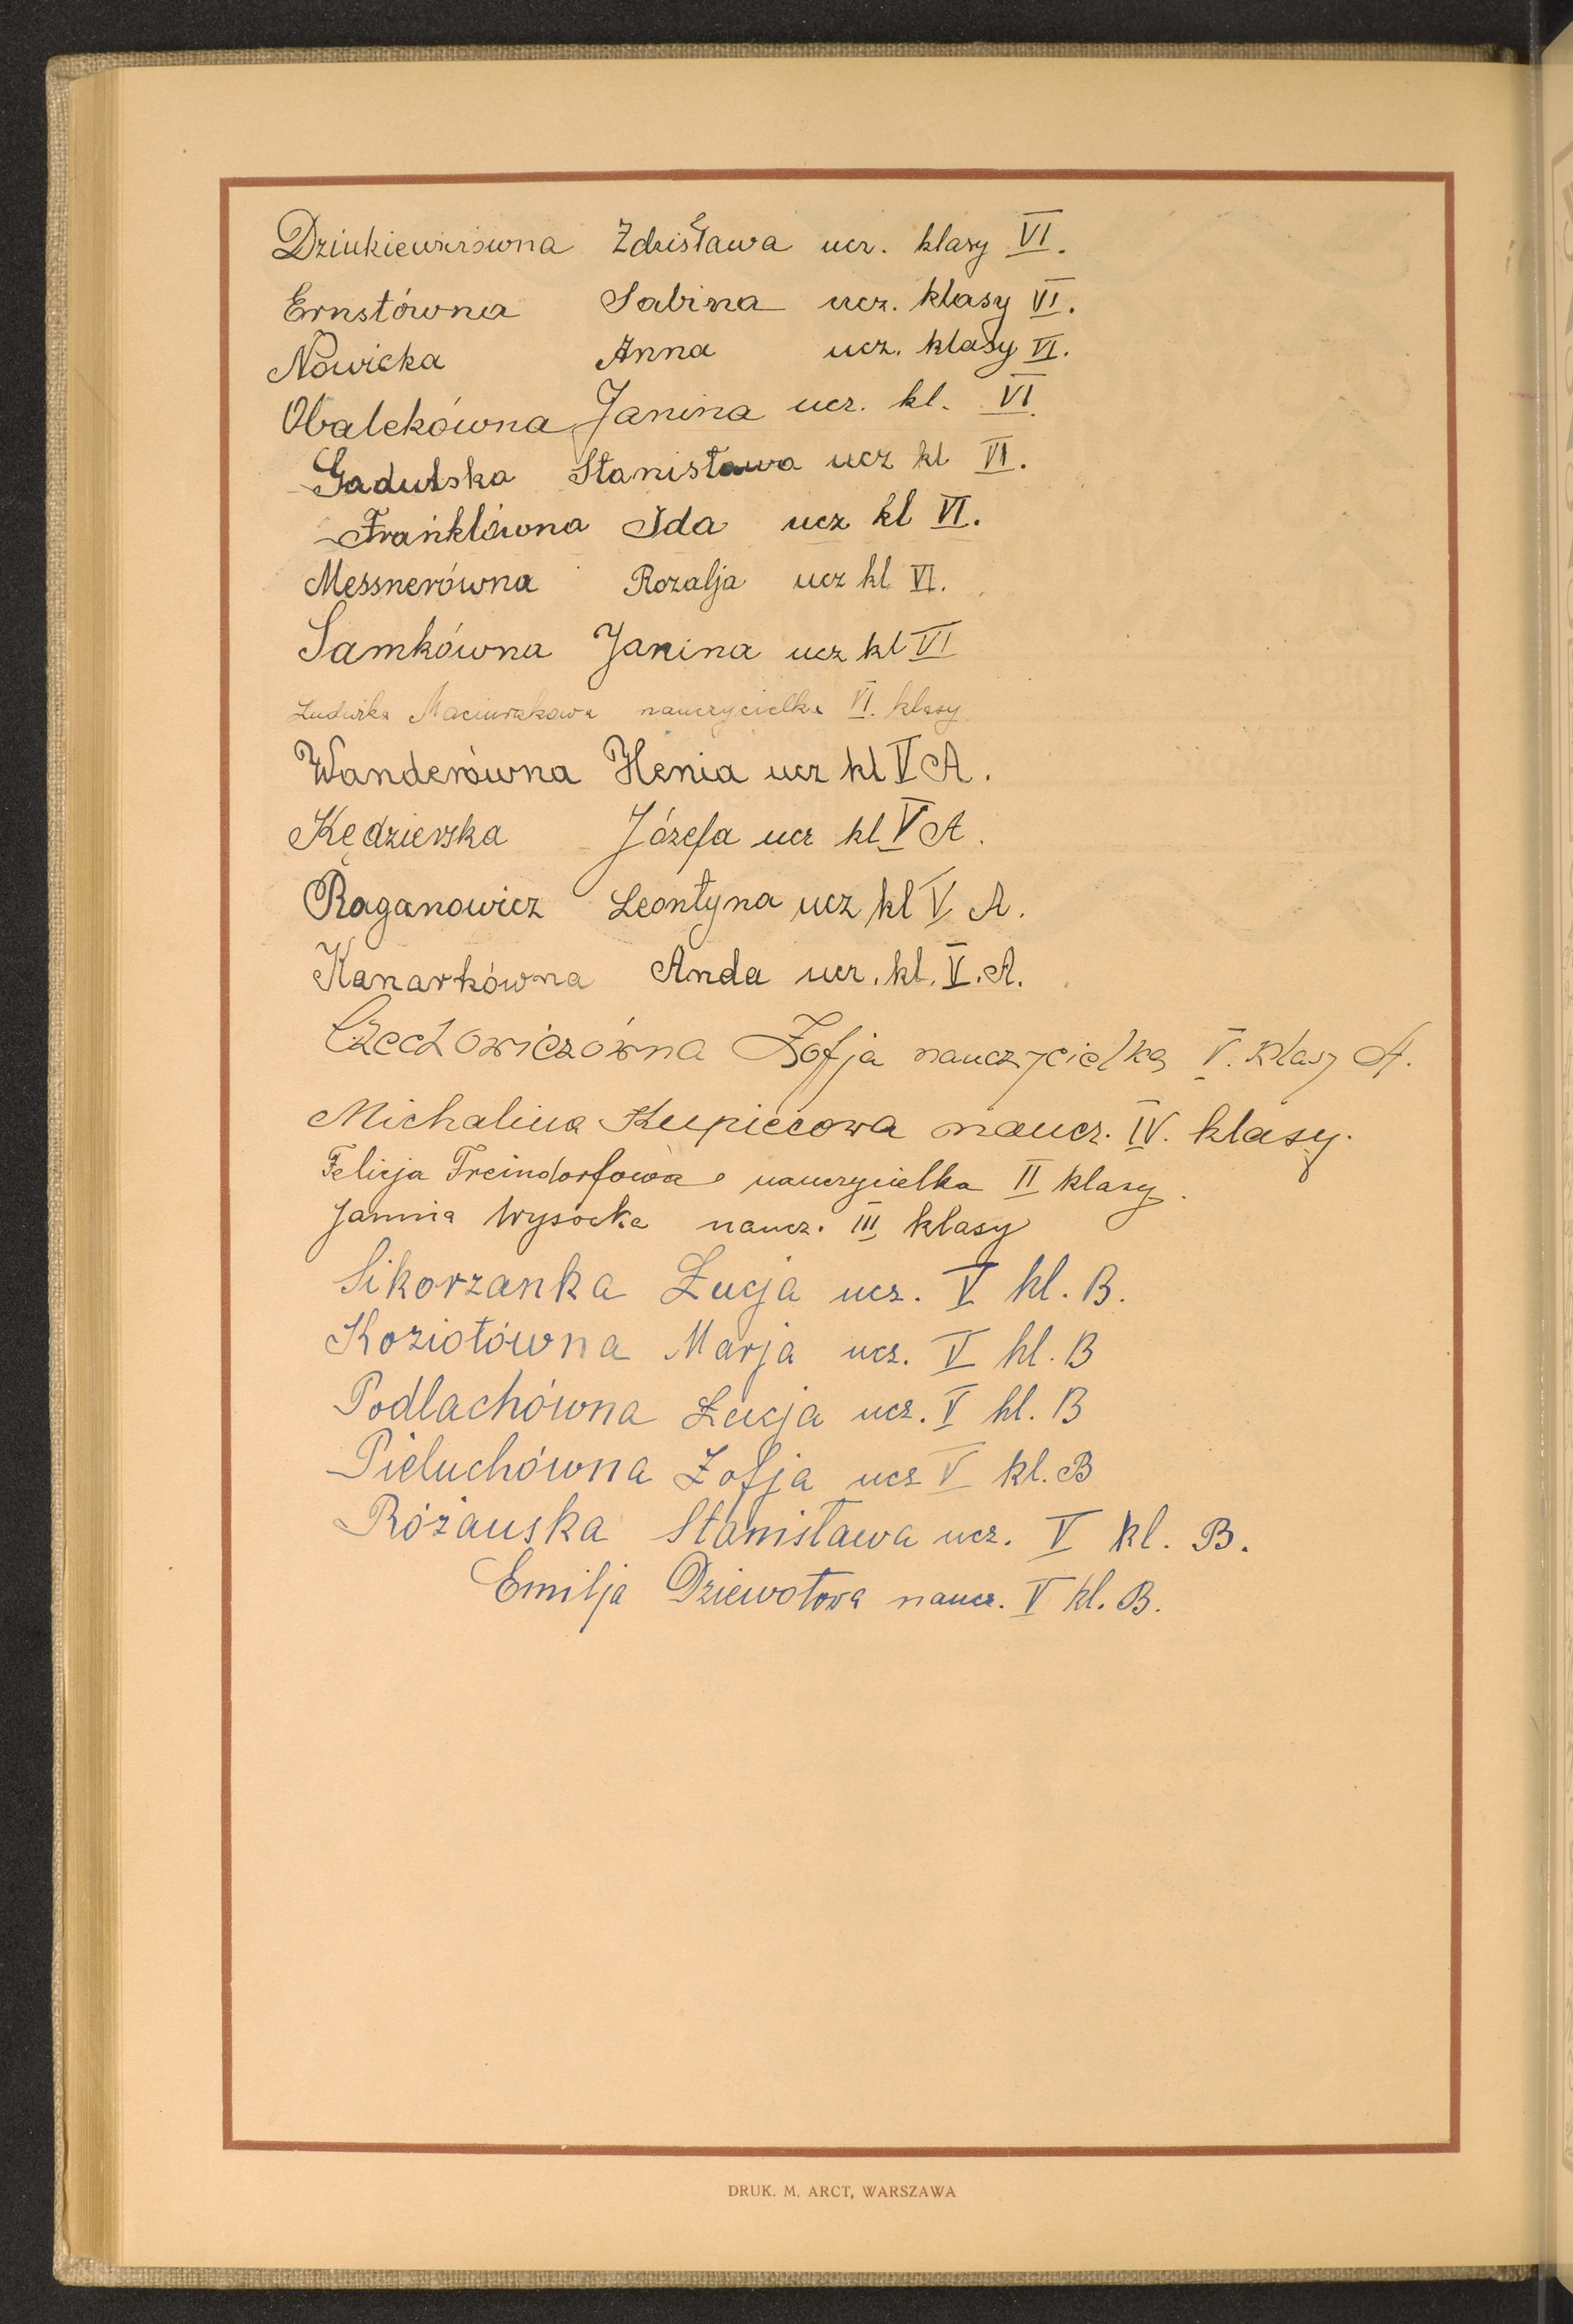 Dziukiewiczówna Zdzisława ucz. klasy VI.
Ernstówna Sabina ucz. klasy VI.
Nowicka Anna ucz. klasy VI.
Obalekówna Janina ucz. kl. VI.
Gadulska Stanisława ucz kl VI.
Franklówna Ida ucz kl VI.
Messnerówna Rozalja ucz kl VI.
Samkówna Janina ucz kl VI
Ludwika Maciurzkowa nauczycielka VI. klasy
Wanderówna Henia ucz kl V A.
Kędzierska Józefa ucz kl V A.
Raganowicz Leontyna ucz kl V A.
Kanarkówna Anda ucz. kl. V. A.
Czechowiczówna Zofja nauczycielka V. klasy A.
Michalina Kupiecowa naucz. IV. klasy.
Felicja Treindorfowa nauczycielka II klasy.
Janina Wysocka naucz. III klasy
Sikorzanka Łucja ucz. V kl. B.
Koziołówna Marja ucz. V kl. B
Podlachówna Łucja ucz. V kl. B
Pieluchówna Zofja ucz V kl. B
Różańska Stanisława ucz. V kl. B.
Emilja Dziewotowa naucz. V kl. B.
DRUK. M. ARCT, WARSZAWA